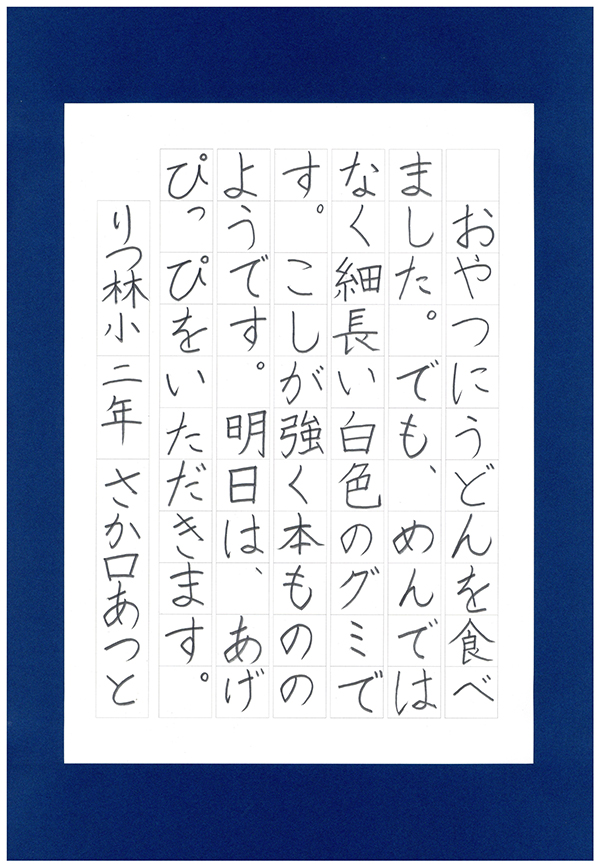 おやつにうどんを食べ
ました。でも、めんでは
なく細長い白色のグミで
す。こしが強く本ものの
ようです。明日は、あげ
ぴっぴをいただきます。
りつ林小 二年 さか口あつと